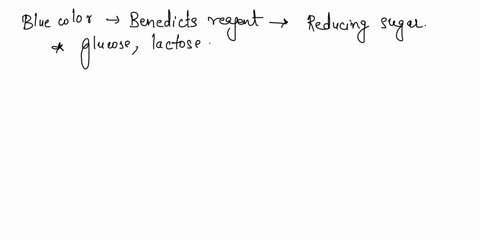 Blue color → Benedicts regent → Reducing sugar.
* glucose, lactose.